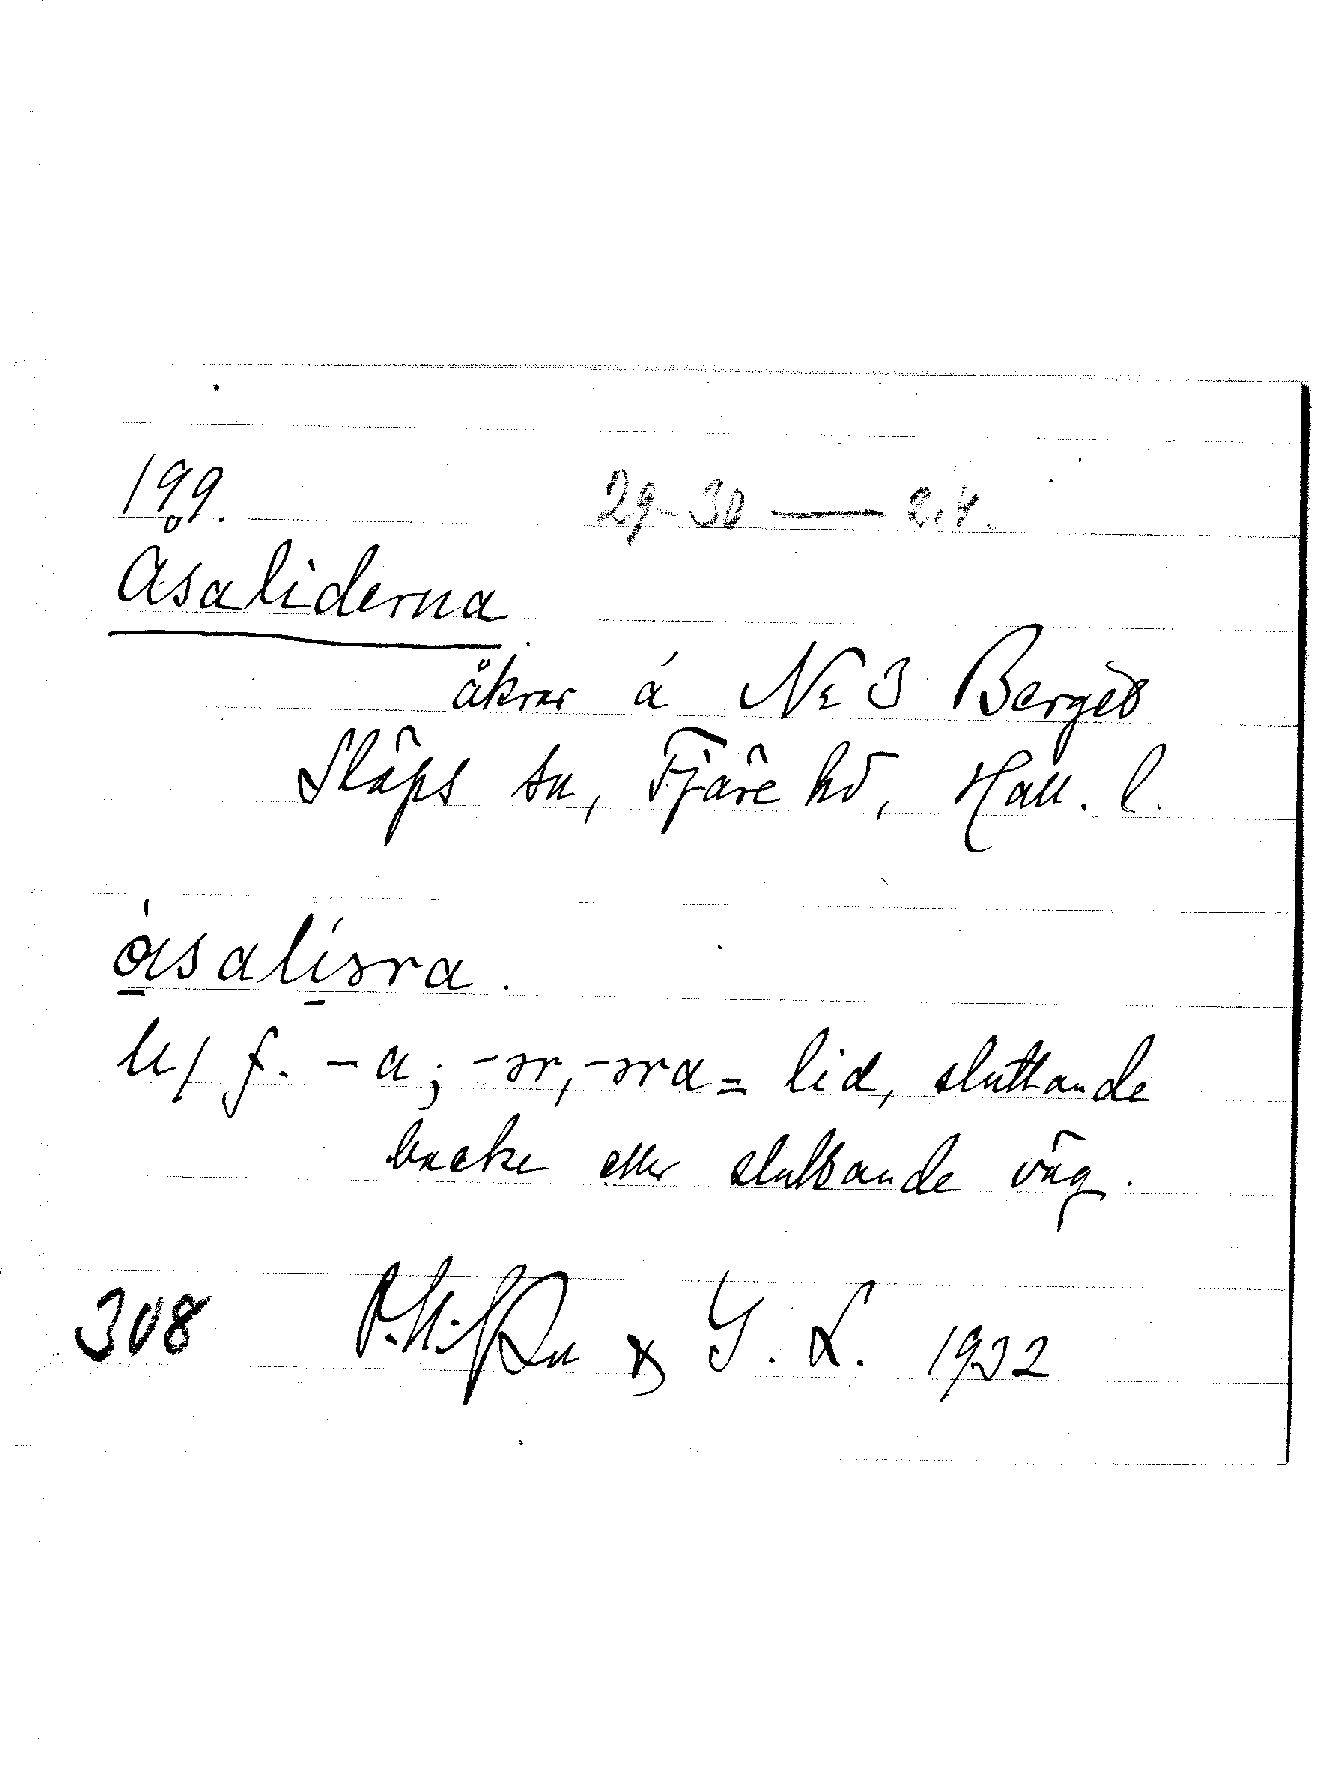 199. 29-30 — 2,4.
Åsaliderna
åkrar á No 3 Berget
Släps sn, Fjäre hd, Hall. l.
åsaliəra.
li, f. -a; -ər, -əra = lid, sluttande
backe eller sluttande väg.
308 & G. L. 1932